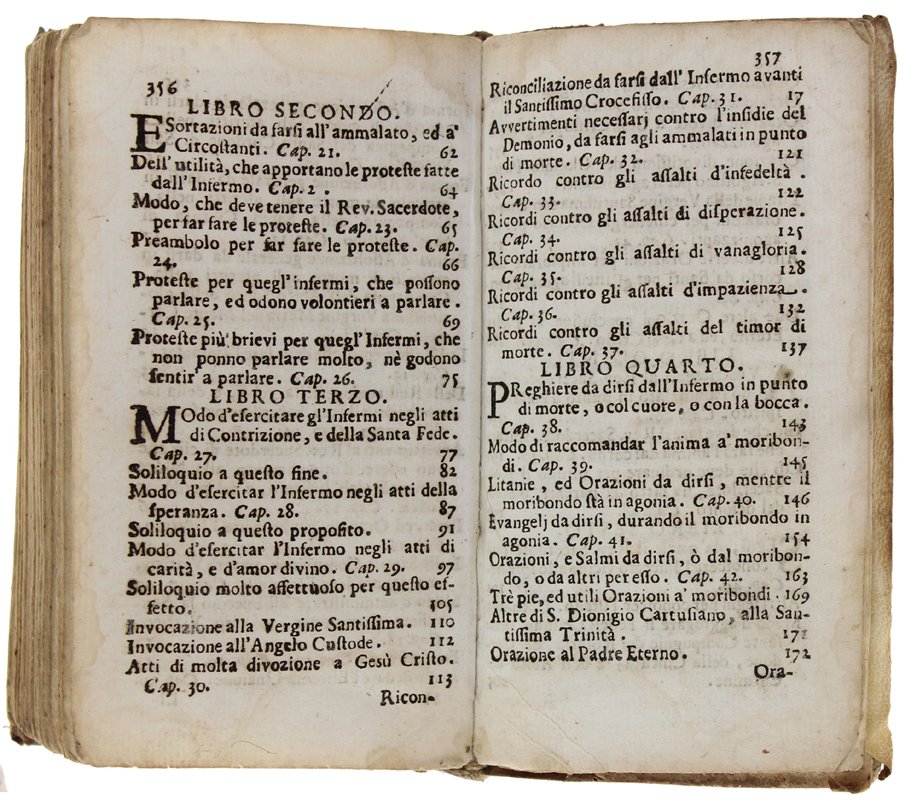 356
LIBRO SECONDO.
ESortazioni da farſi all' ammalato, ed a'
Circoſtanti. Cap. 21. 62
Dell' utilità, che apportano le proteſte fatte
dall' Infermo. Cap. 2 . 64
Modo, che deve tenere il Rev. Sacerdote,
per far fare le proteſte. Cap. 23. 65
Preambolo per far fare le proteſte. Cap.
24. 66
Proteſte per quegl'infermi, che poſſono
parlare, ed odono volontieri a parlare.
Cap. 25. 69
Proteſte più brievi per quegl' Infermi, che
non ponno parlare molto, nè godono
ſentir' a parlare. Cap. 26. 75
LIBRO TERZO.
MOdo d'eſercitare gl'Infermi negli atti
di Contrizione, e della Santa Fede.
Cap. 27. 77
Soliloquio a queſto fine. 82
Modo d'eſercitar l'Infermo negli atti della
ſperanza. Cap. 28. 87
Soliloquio a queſto propoſito. 91
Modo d'eſercitar l'Infermo negli atti di
carità, e d'amor divino. Cap. 29. 97
Soliloquio molto affettuoſo per queſto ef-
fetto. 105
Invocazione alla Vergine Santiſſima. 110
Invocazione all'Angelo Cuſtode. 112
Atti di molta divozione a Gesù Criſto.
Cap. 30. 113
Ricon-
357
Riconciliazione da farſi dall' Infermo avanti
il Santiſſimo Crocefiſſo. Cap. 31. 17
Avvertimenti neceſſarj contro l'inſidie del
Demonio, da farſi agli ammalati in punto
di morte. Cap. 32. 121
Ricordo contro gli aſſalti d'infedeltà.
Cap. 33. 122
Ricordi contro gli aſſalti di diſperazione.
Cap. 34. 125
Ricordi contro gli aſſalti di vanagloria.
Cap. 35. 128
Ricordi contro gli aſſalti d'impazienza.
Cap. 36. 132
Ricordi contro gli aſſalti del timor di
morte. Cap. 37. 137
LIBRO QUARTO.
PReghiere da dirſi dall'Infermo in punto
di morte, o col cuore, o con la bocca.
Cap. 38. 143
Modo di raccomandar l'anima a' moribon-
di. Cap. 39. 145
Litanie, ed Orazioni da dirſi, mentre il
moribondo ſtà in agonia. Cap. 40. 146
Evangelj da dirſi, durando il moribondo in
agonia. Cap. 41. 154
Orazioni, e Salmi da dirſi, ò dal moribon-
do, o da altri per eſſo. Cap. 42. 163
Trè pie, ed utili Orazioni a' moribondi. 169
Altre di S. Dionigio Cartuſiano, alla San-
tiſſima Trinità. 171
Orazione al Padre Eterno. 172
Ora-